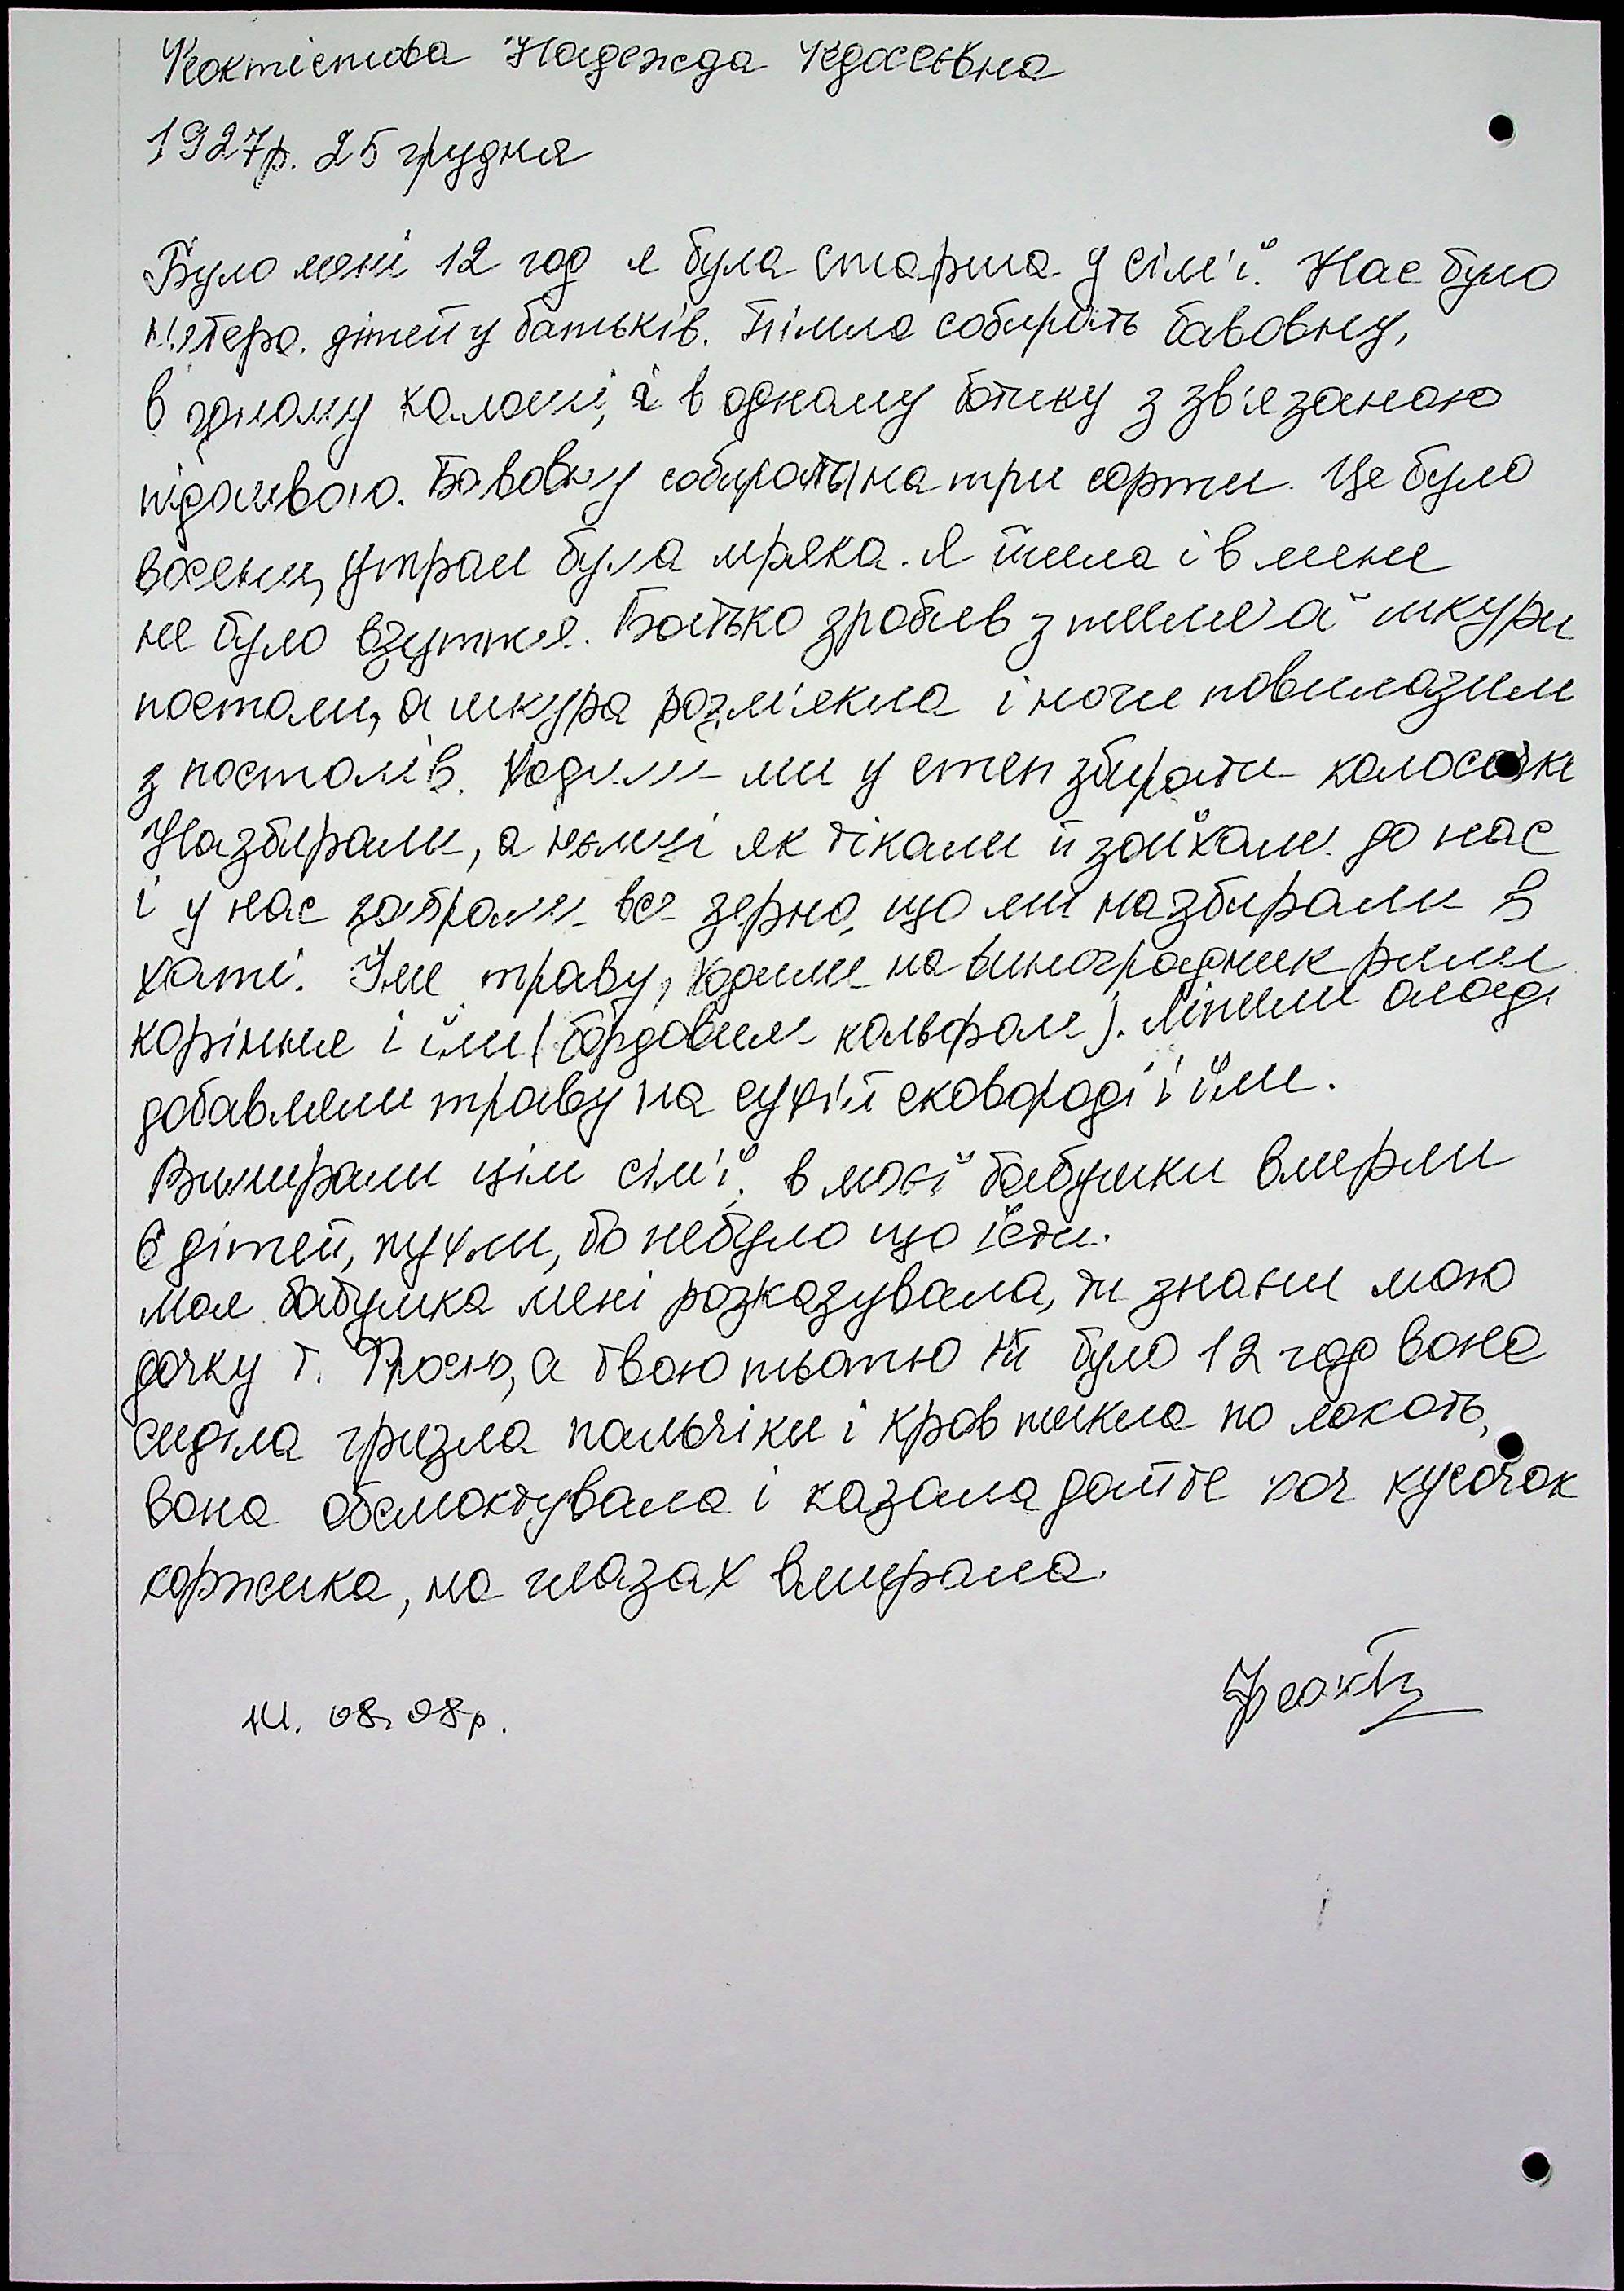 Феоктістова Надежда Федосеївна
1927р. 25 грудня
Було мені 12 год я була старша у сім'ї. Нас було
п'ятеро дітей у батьків. Пішла собирать бавовну,
в одному калоші, а в одному ботику з зв'язаною
підошвою. Бавовну собирать на три сорти. Це було
восени, утрам була мряка. Я йшла і в мене
не було взуття. Батько зробив з шкури
постоли, а шкура розм'якла і ноги повилазили
з постолів. Ходили ми у степ збирати колоски
Назбирали, а німці як тікали й заїхали до нас
і у нас забрали все зерно, що ми назбирали в
хаті. Їли траву, ходили на виноградник рили
коріння і їли (бордовим кольором). Ліпили оладі
добавляли траву на сухій сковороді і їли.
Вимирали цілі сім'ї, в моєї бабушки вмерли
6 дітей, пухли, бо небуло що їсти.
Моя бабушка мені розказувала, ти знаєш мою
дочку т. Фросю, а твою тьотю їй було 12 год вона
сиділа гризла пальчіки і кров тикла по локоть,
вона обсмоктувала і казала дайте хоч кусочок
коржика, на глазах вмирала.
08.08р.